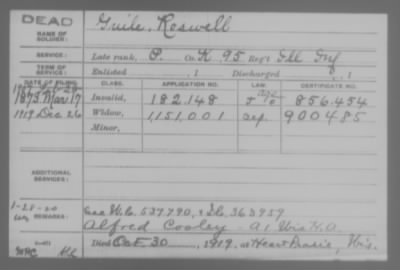 DEAD
NAME OF SOLDIER: Guile, Roswell
SERVICE: Late rank, P. Co. K, 95 Reg't Ill Inf
TERM OF SERVICE: Enlisted , 1 Discharged , 1
DATE OF FILING. CLASS. APPLICATION NO. LAW. CERTIFICATE NO.
1875 Mar 17 Invalid, 182.148 age 856.454
1919 Dec 26 Widow, 1,151,001 Sep. 900485
Minor,
ADDITIONAL SERVICES:
1-28-20
REMARKS: See W.C. 537790, +
Alfred Cooley - A1
Died Oct. 30, 1919, at Heart Prairie, Wis.